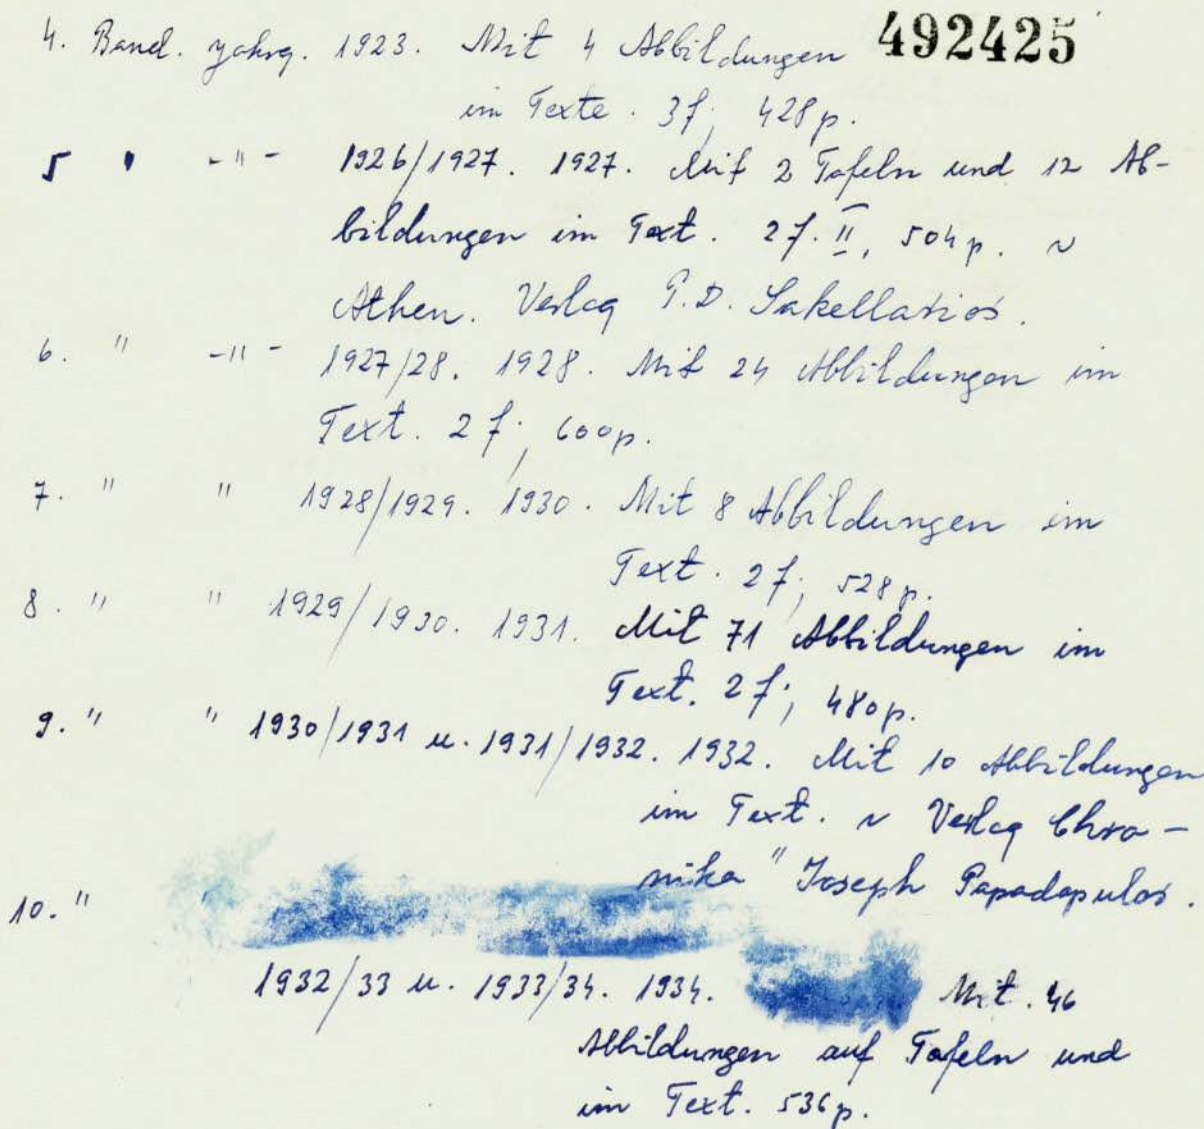 4. Band. Jahrg. 1923. Mit 4 Abbildungen 492425
im Texte. 3 f; 428 p.
5 " -"- 1926/1927. 1927. Mit 2 Tafeln und 12 Ab-
bildungen im Text. 2 f. II, 504 p. ~
Athen. Verlag P.D. Sakellarios.
6. " -"- 1927/28. 1928. Mit 24 Abbildungen im
Text. 2 f; 600 p.
7. " " 1928/1929. 1930. Mit 8 Abbildungen im
Text. 2 f; 528 p.
8. " " 1929/1930. 1931. Mit 71 Abbildungen im
Text. 2 f; 480 p.
9. " " 1930/1931 u. 1931/1932. 1932. Mit 10 Abbildungen
im Text. ~ Verlag Chro-
nika" Joseph Papadopulos.
10. " "
1932/33 u. 1933/34. 1934. Mit. 46
Abbildungen auf Tafeln und
im Text. 536 p.